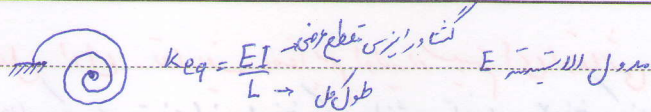 Keq = EI / L → گشتاور اینرسی سطح مقطع عرضی
طول کل
E مدول الاستیسیته